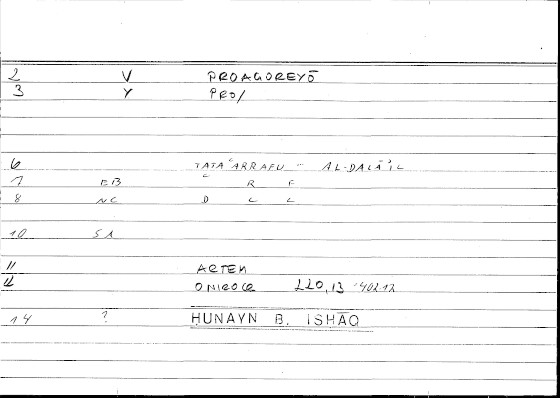 2 V PROAGOREYŌ
3 Y PRO/
6 TATAʿARRAFU - AL-DALĀʾIL
7 EB ʿ R F
8 NC D L L
10 SA
11 ARTEM
12 ONIROCR 220,13 - 402,12
14 ? HUNAYN B. ISHĀQ